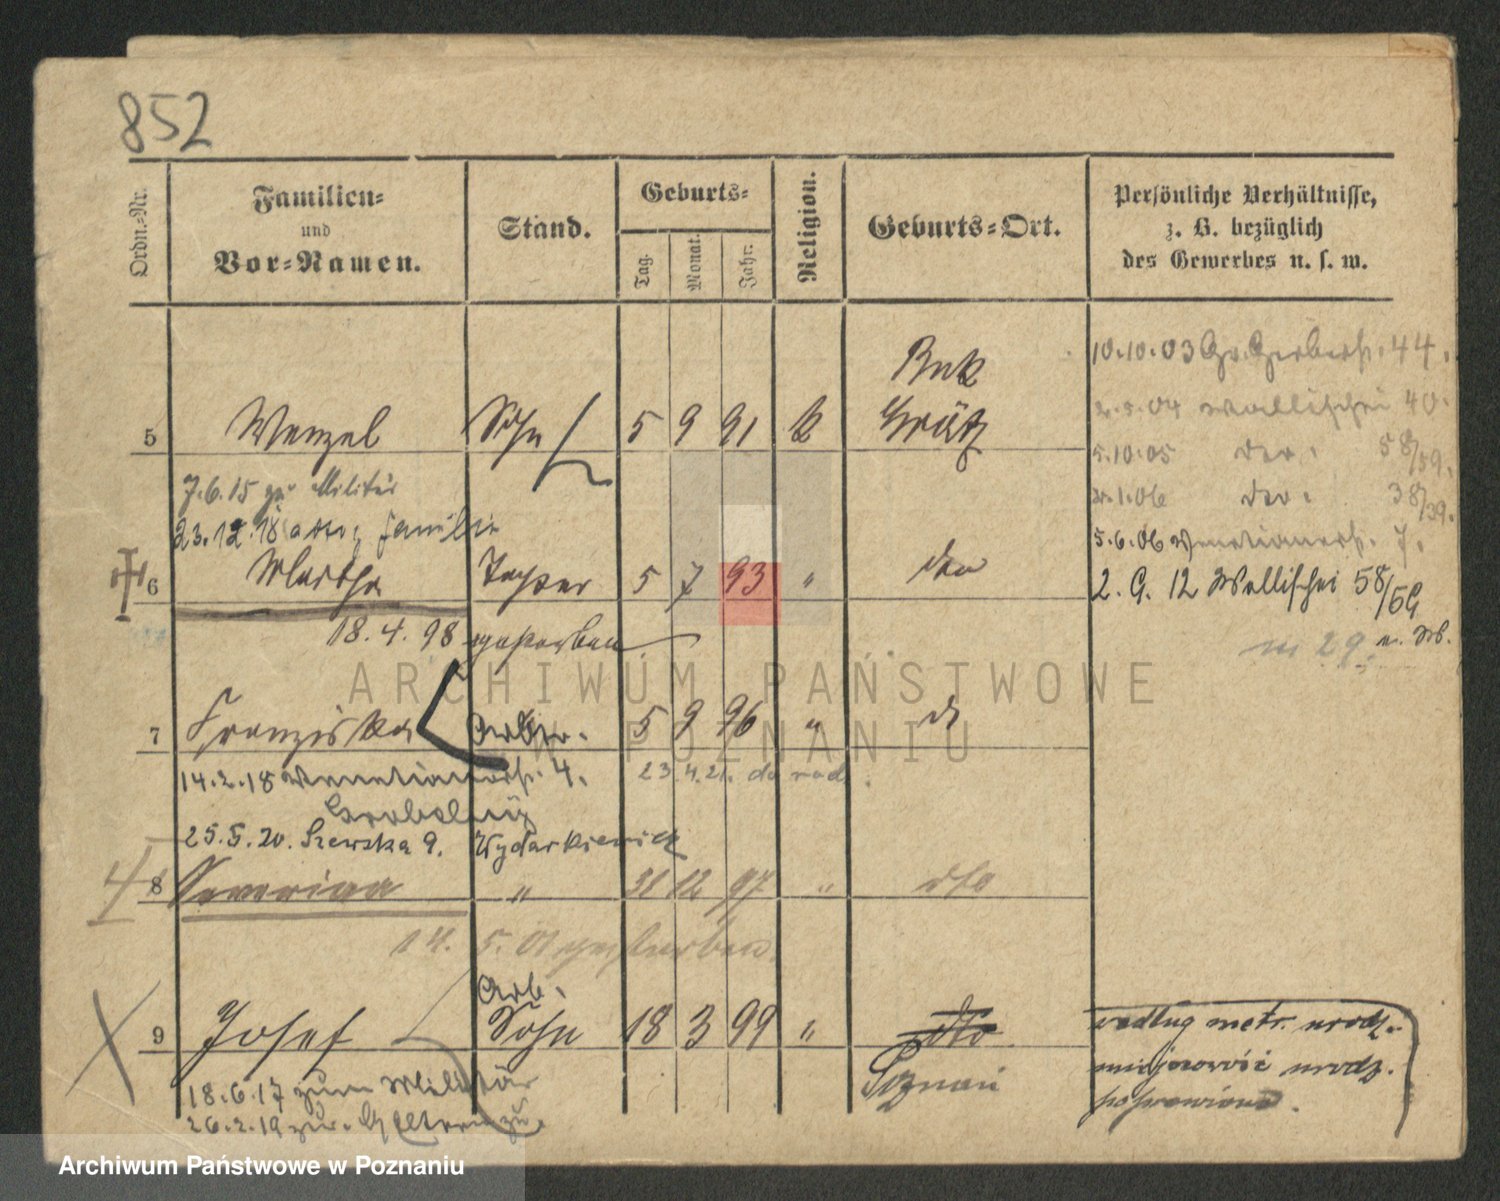 852
Ordn.-Nr.
Familien- und Vor-Namen.
Stand.
Geburts-
Tag. Monat. Jahr.
Religion.
Geburts-Ort.
Persönliche Verhältnisse, z. B. bezüglich des Gewerbes u. s. w.
10.10.03 Gr. Gerberstr. 44.
2.5.04 Wallischei 40.
5.10.05 58/59.
2.1.06 38/39.
5.6.06 Venetianerstr. 7.
2. 9. 12 Wallischei 58/59
Buk
5 Wenzel Sohn 5 9 91 k Grätz
7.6.15 zum Militär
23.12.18 Familie
6 Martha Tochter 5 7 93 " dto
18.4.98 gestorben
7 Franziska Arbtr. 5 9 96 " dt
14.2.18 Venetianerstr. 4. 23 4.21. do rod
Grobelnig
25.5.20. Szewska 9. Wydarkiewicz
8 Severina " 21 12 97 " dto
14. 5. 01 gestorben
Arb.
9 Josef Sohn 18 3 99 " dto
Poznań
według metr. urodz.
miejscowość urodz.
poprawiono.
18.6.17 zum Militär
26.2.19 zur. v. Eltern zu.
ARCHIWUM PAŃSTWOWE
W POZNANIU
Archiwum Państwowe w Poznaniu